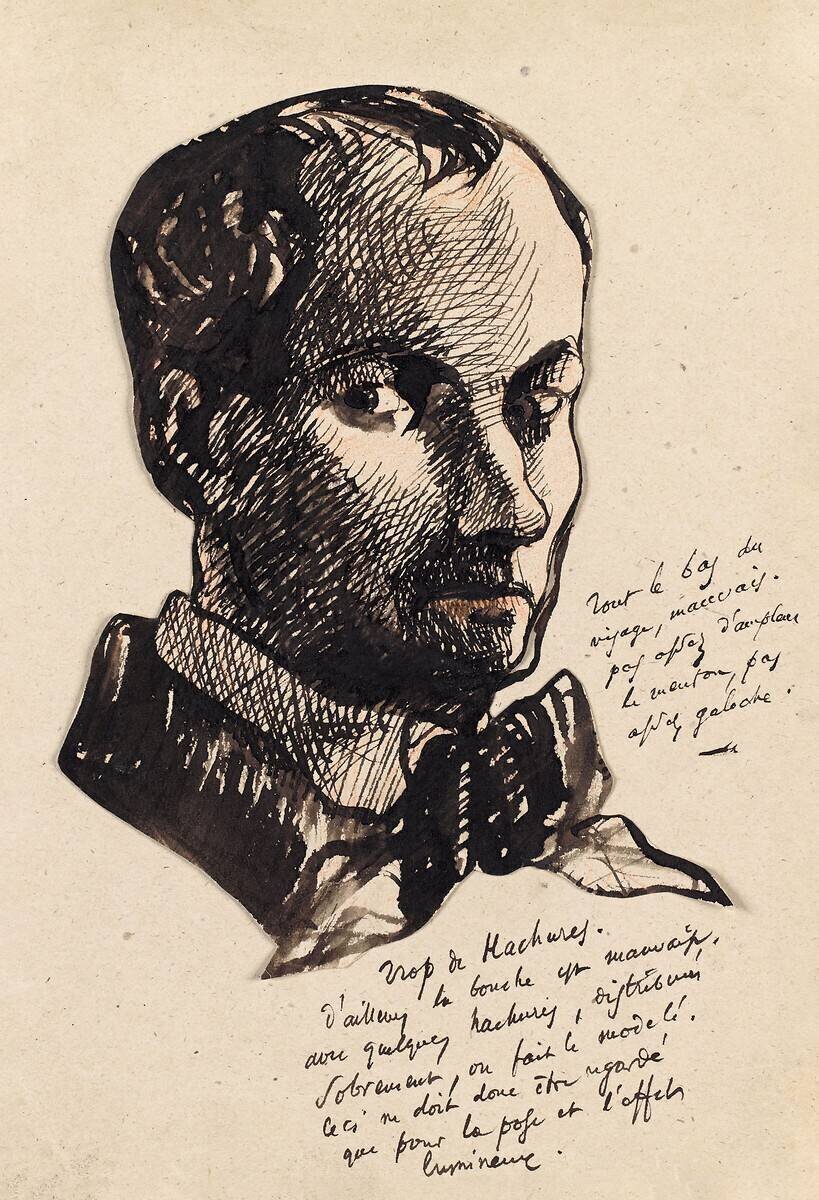 Tout le bas du
visage, mauvais.
pas assez d'ampleur
le menton, pas
assez galoche.
Trop de Hachures.
D'ailleurs la bouche est mauvaise.
avec quelques hachures, distribuées
sobrement, on fait le modelé.
Ceci ne doit donc être regardé
que pour la pose et l'effet
lumineux.